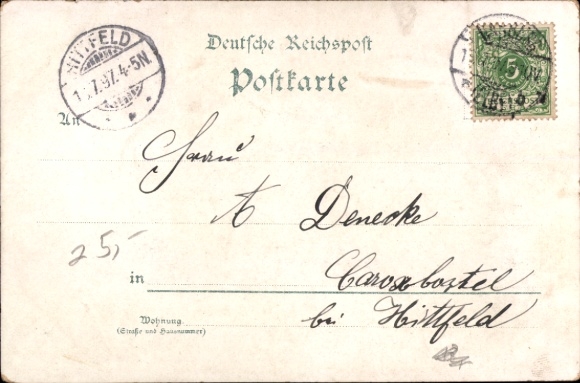 HITTFELD
7.97.4-5N.
Deutsche Reichspost
Postkarte
5
An
Frau
A Denecke
25,-
in Caroxbostel
Wohnung
(Straße und Hausnummer)
bei Hittfeld